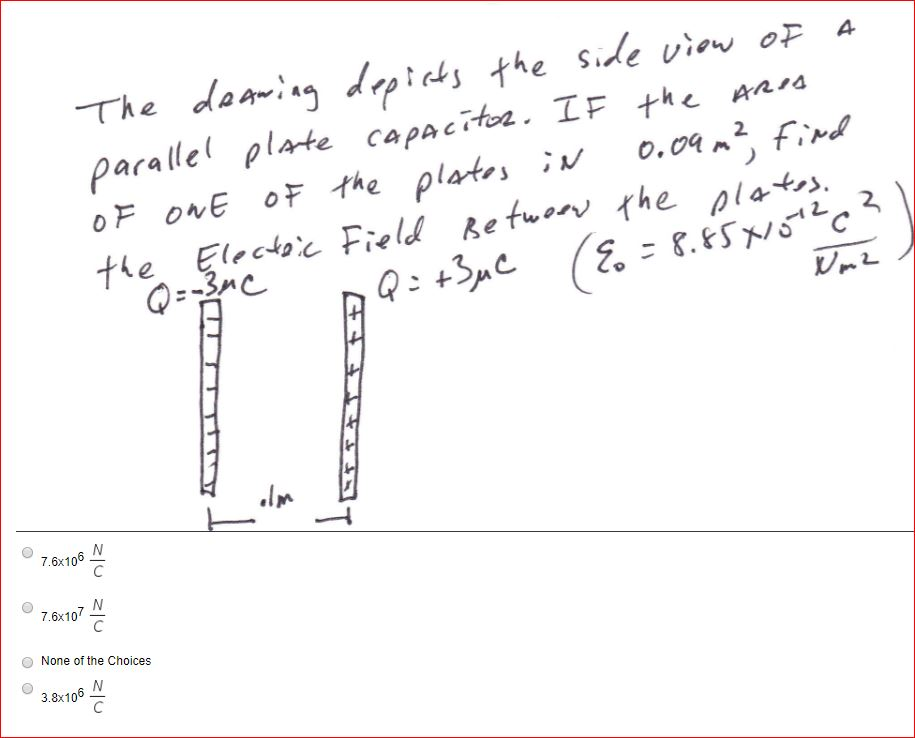 The drawing depicts the side view OF A
parallel plate CAPACitor. IF the AREA
OF ONE OF the plates iN 0.09 m², Find
the Electric Field Between the plates.
Q = -3μC Q = +3μC (ε₀ = 8.85 x 10⁻¹² C²/Nm²)
.1m
7.6x10⁶ N/C
7.6x10⁷ N/C
None of the Choices
3.8x10⁶ N/C